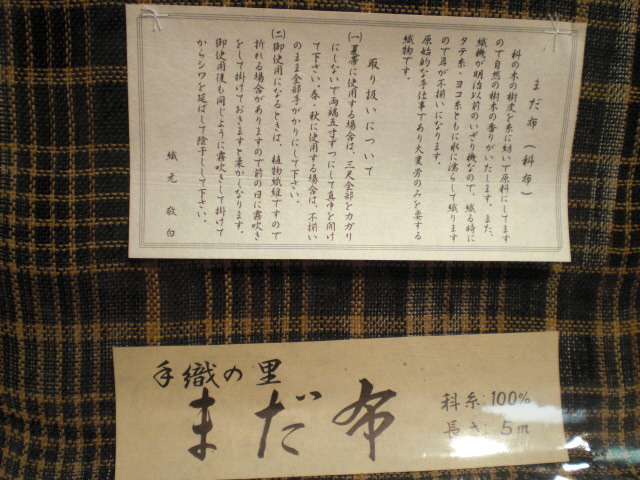 まだ布(科布)
科の木の樹皮を糸に紡いで原料にしてます
ので自然の樹木の香りがいたします。また、
織機が明治以前のいざり機なので、織る時に
タテ糸・ヨコ糸ともに水に濡らして織ります
ので耳が不揃いになります。
原始的な手仕事であり大変労のみを要する
織物です。
取り扱いについて
(一)夏帯に使用する場合は、三尺全部をカガリ
にしないで両端五寸ずつにして真中を開け
て下さい。春・秋に使用する場合は、不揃い
のまま全部手がかりにして下さい。
(二)御使用になるときは、植物繊維ですので
折れる場合がありますので前の日に霧吹き
をして掛けておきますと柔かくなります。
御使用後も同じように霧吹きして掛けて
からシワを延ばして陰干しして下さい。
織元 敬白
手織の里
まだ布
科糸:100%
長さ:5m